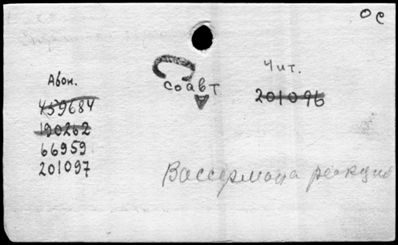 ос
Абон.
459684
190262
66959
201097
соавт
Чит.
201096
Вассермана реакция